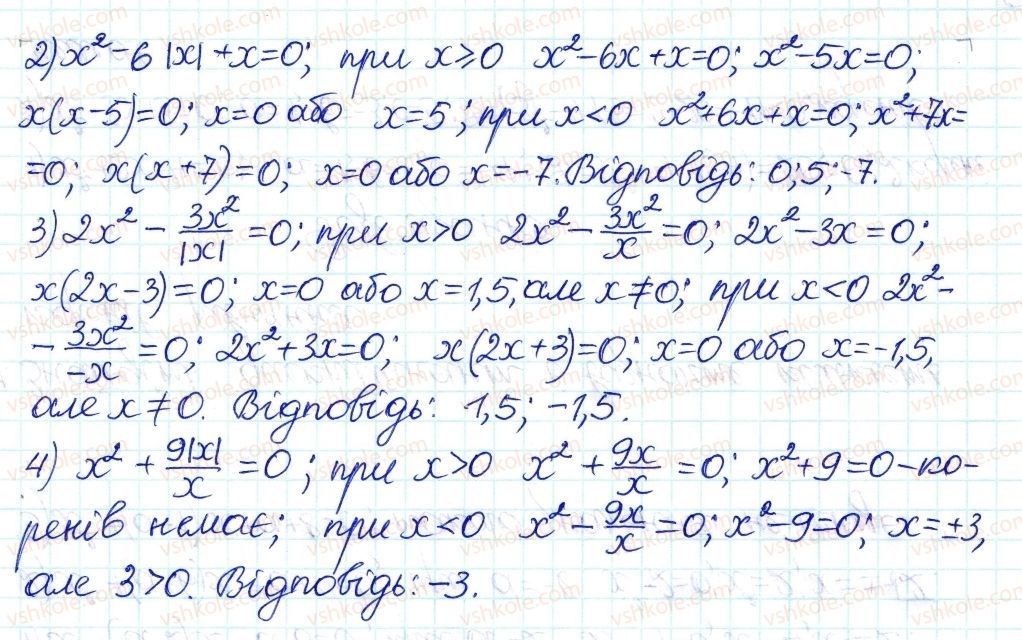 2) x² - 6|x| + x = 0; при x ⩾ 0 x² - 6x + x = 0; x² - 5x = 0;
x(x - 5) = 0; x = 0 або x = 5; при x < 0 x² + 6x + x = 0; x² + 7x =
= 0; x(x + 7) = 0; x = 0 або x = -7. Відповідь: 0; 5; -7.
3) 2x² - 3x²/|x| = 0; при x > 0 2x² - 3x²/x = 0; 2x² - 3x = 0;
x(2x - 3) = 0; x = 0 або x = 1,5, але x ≠ 0; при x < 0 2x² -
- 3x²/-x = 0; 2x² + 3x = 0; x(2x + 3) = 0; x = 0 або x = -1,5,
але x ≠ 0. Відповідь: 1,5; -1,5.
4) x² + 9|x|/x = 0; при x > 0 x² + 9x/x = 0; x² + 9 = 0 - ко-
ренів немає; при x < 0 x² - 9x/x = 0; x² - 9 = 0; x = ±3,
але 3 > 0. Відповідь: -3.